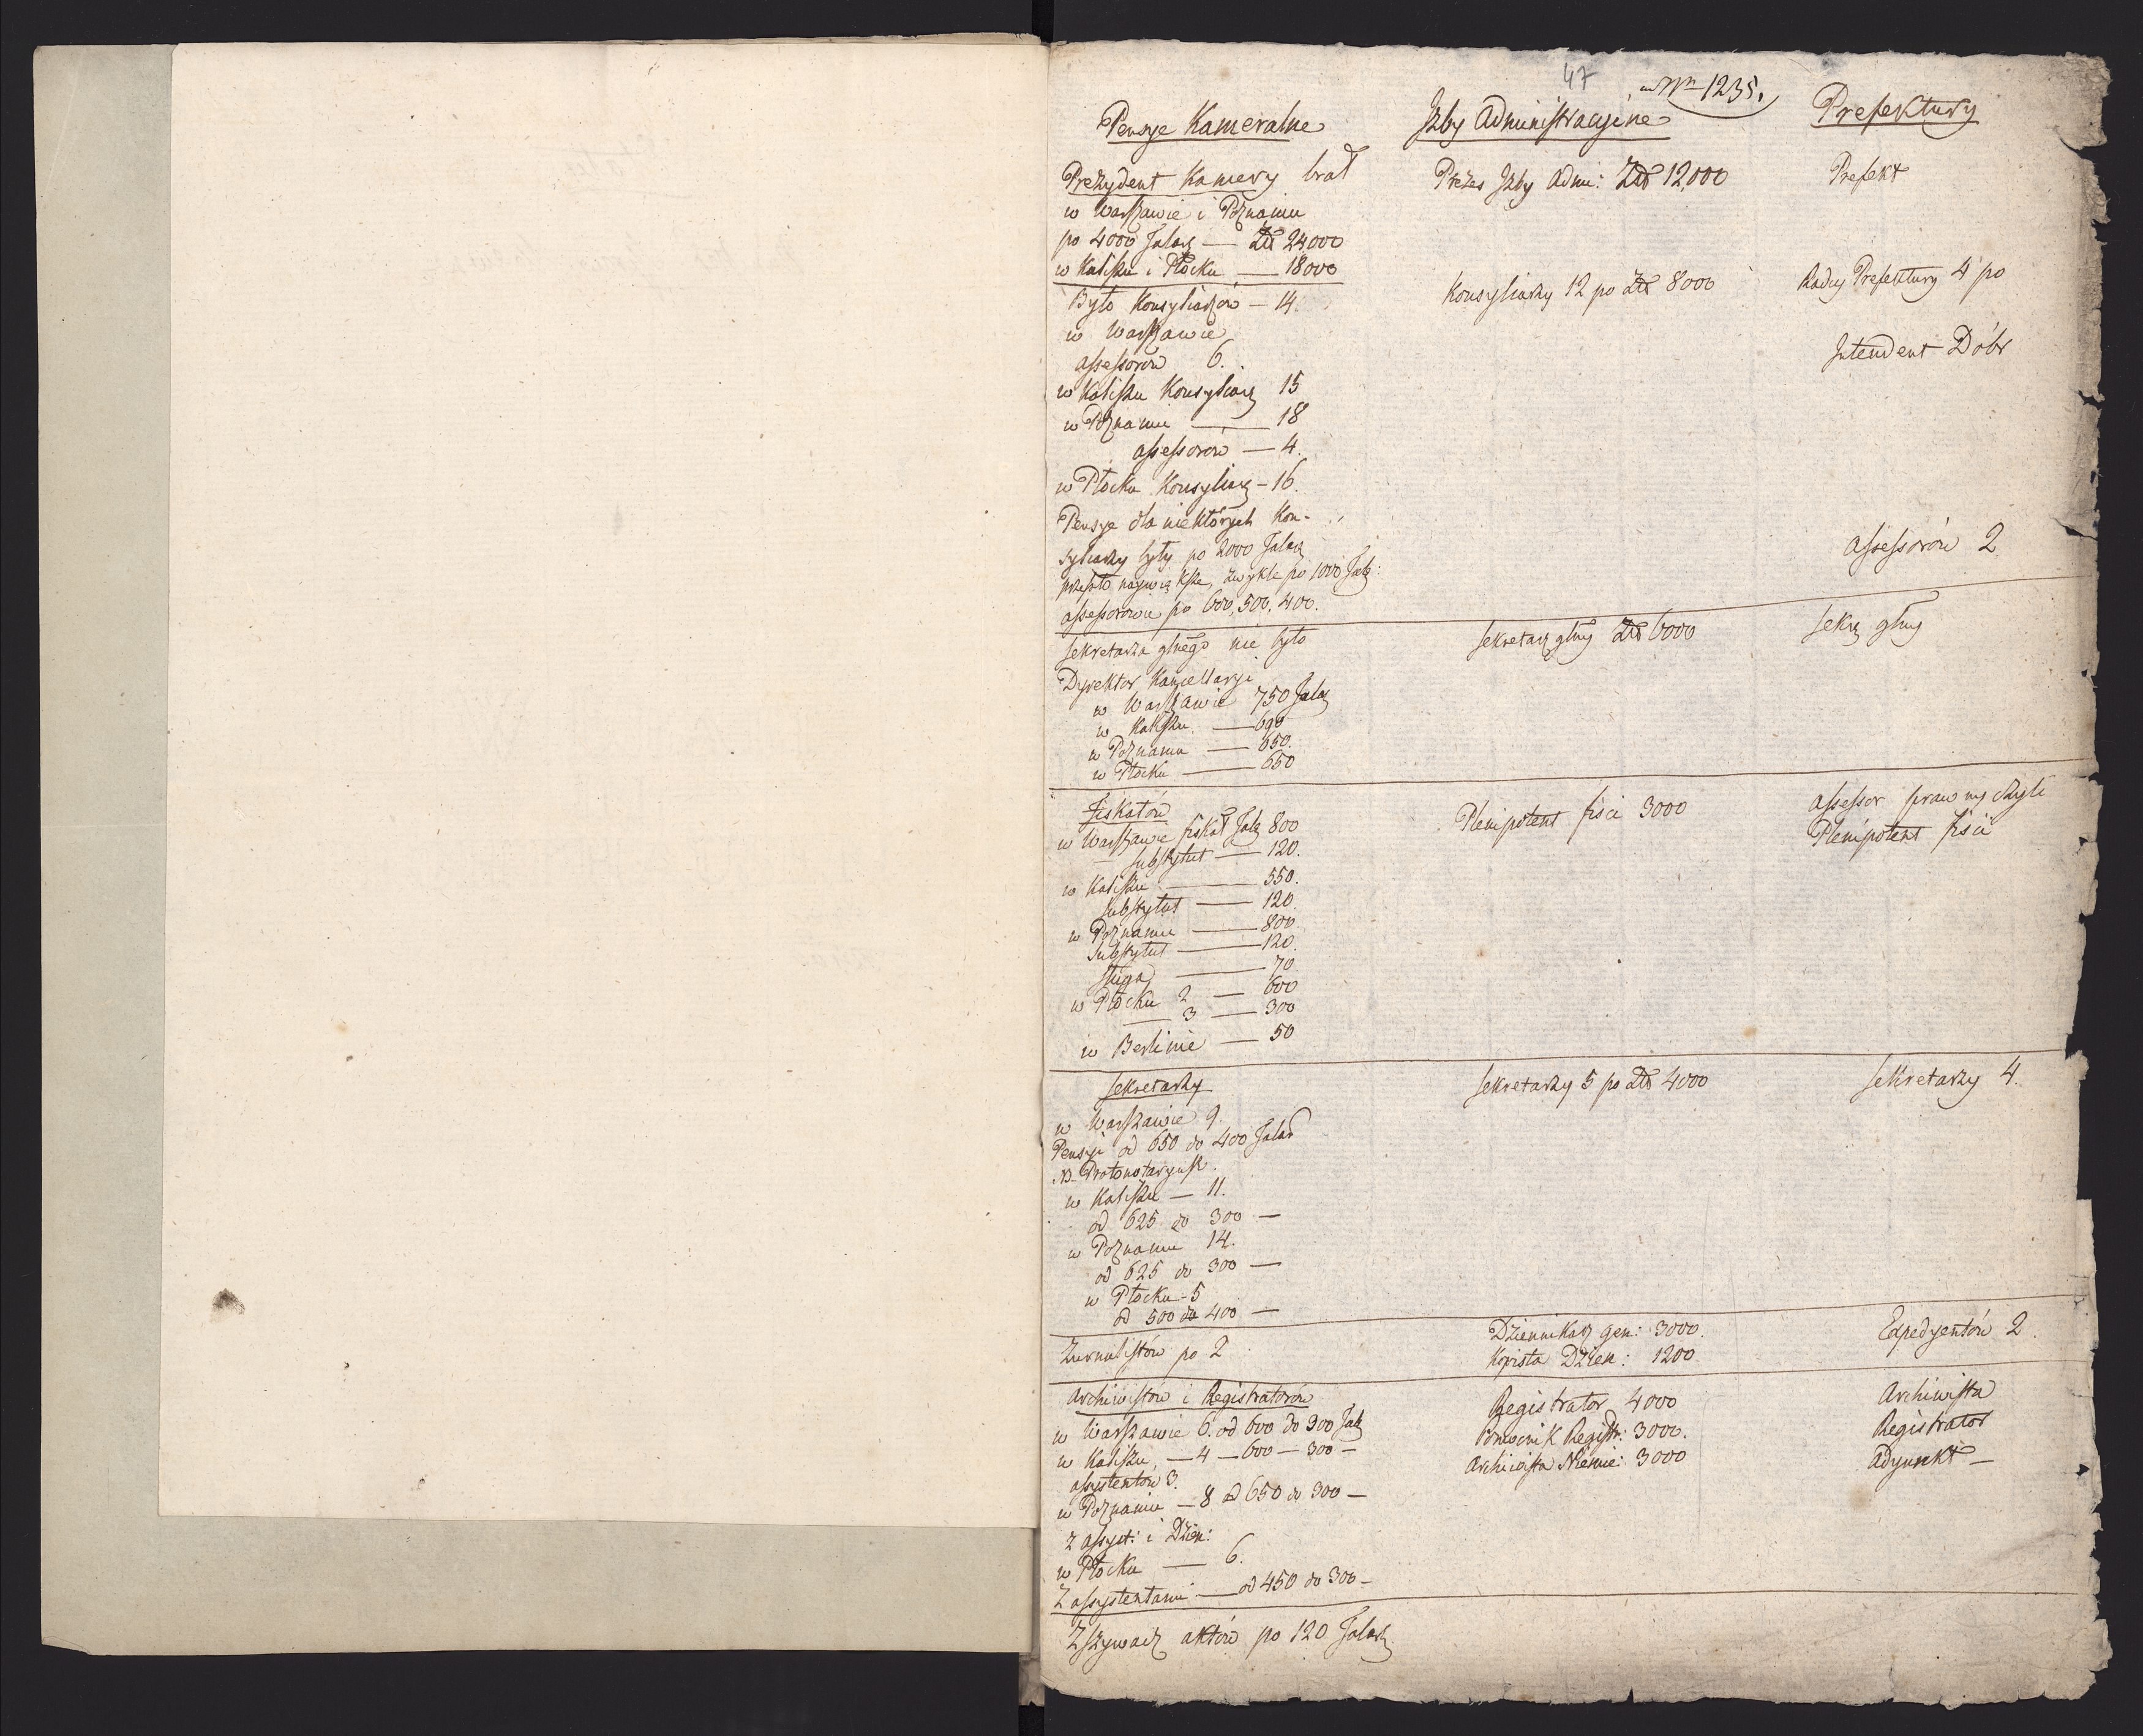 47
ad Nrm 1235.
Pensye Kameralne
Prezydent Kamery brał
w Warszawie i Poznaniu
po 4000 Talar — Złł 24000
w Kaliszu i Płocku — 18000
Było Konsyliarzów — 14.
w Warszawie
assessorów 6.
w Kaliszu Konsyliarz 15
w Poznaniu — 18
assessorów — 4.
w Płocku Konsyliarz — 16.
Pensye dla niektórych Kon-
syliarzy były po 2000 Talar
naywiększe, zwykle po 1000 Talr:
assessorowie po 600, 500, 400.
Sekretarza głnego nie było
Dyrektor Kancellaryi
w Warszawie 750 Talar
w Kaliszu — 690
w Poznaniu — 650.
w Płocku — 650
Fiskałów
w Warszawie fiskał Talr 800
— Substytut — 120.
w Kaliszu — 550.
Substytut — 120.
w Poznaniu — 800
Substytut — 120.
Sługa — 70
w Płocku 2 — 600
— 3 — 300
w Berlinie — 50
Sekretarzy
w Warszawie 9.
Pensyi od 650 do 400 Talar
NB. Protonotaryusz.
w Kaliszu — 11.
od 625 do 300 —
w Poznaniu 14.
od 625 do 300 —
w Płocku — 5
od 500 do 400 —
Żurnalistów po 2
Archiwistów i Registratorów
w Warszawie 6. od 600 do 300 Talr
w Kaliszu, — 4 — 600 — 300 —
assystentów 3.
w Poznaniu — 8 od 650 do 300 —
z assyst: i Dzien:
w Płocku — 6.
Z assystentami — od 450 do 300 —
Zszywacz aktów po 120 Talar
Izby Administracyine
Prezes Izby Admi: Złł 12,000
Konsyliarzy 12 po Złł 8000
Sekretarz głny Złł 6000
Plenipotent fisci 3000
Sekretarzy 5 po Złł 4000
Dziennikarz gen: 3000.
Kopista Dzien: 1200
Registrator 4000
Pomocnik Registr: 3000.
Archiwista Niemie: 3000
Prefektury
Prefekt
Radcy Prefektury 4 po
Intendent Dóbr
Assessorów 2
Sekrz głny
Assessor prawny czyli
Plenipotent fisci
Sekretarzy 4.
Expedyentów 2.
Archiwista
Registrator
Adyunkt —